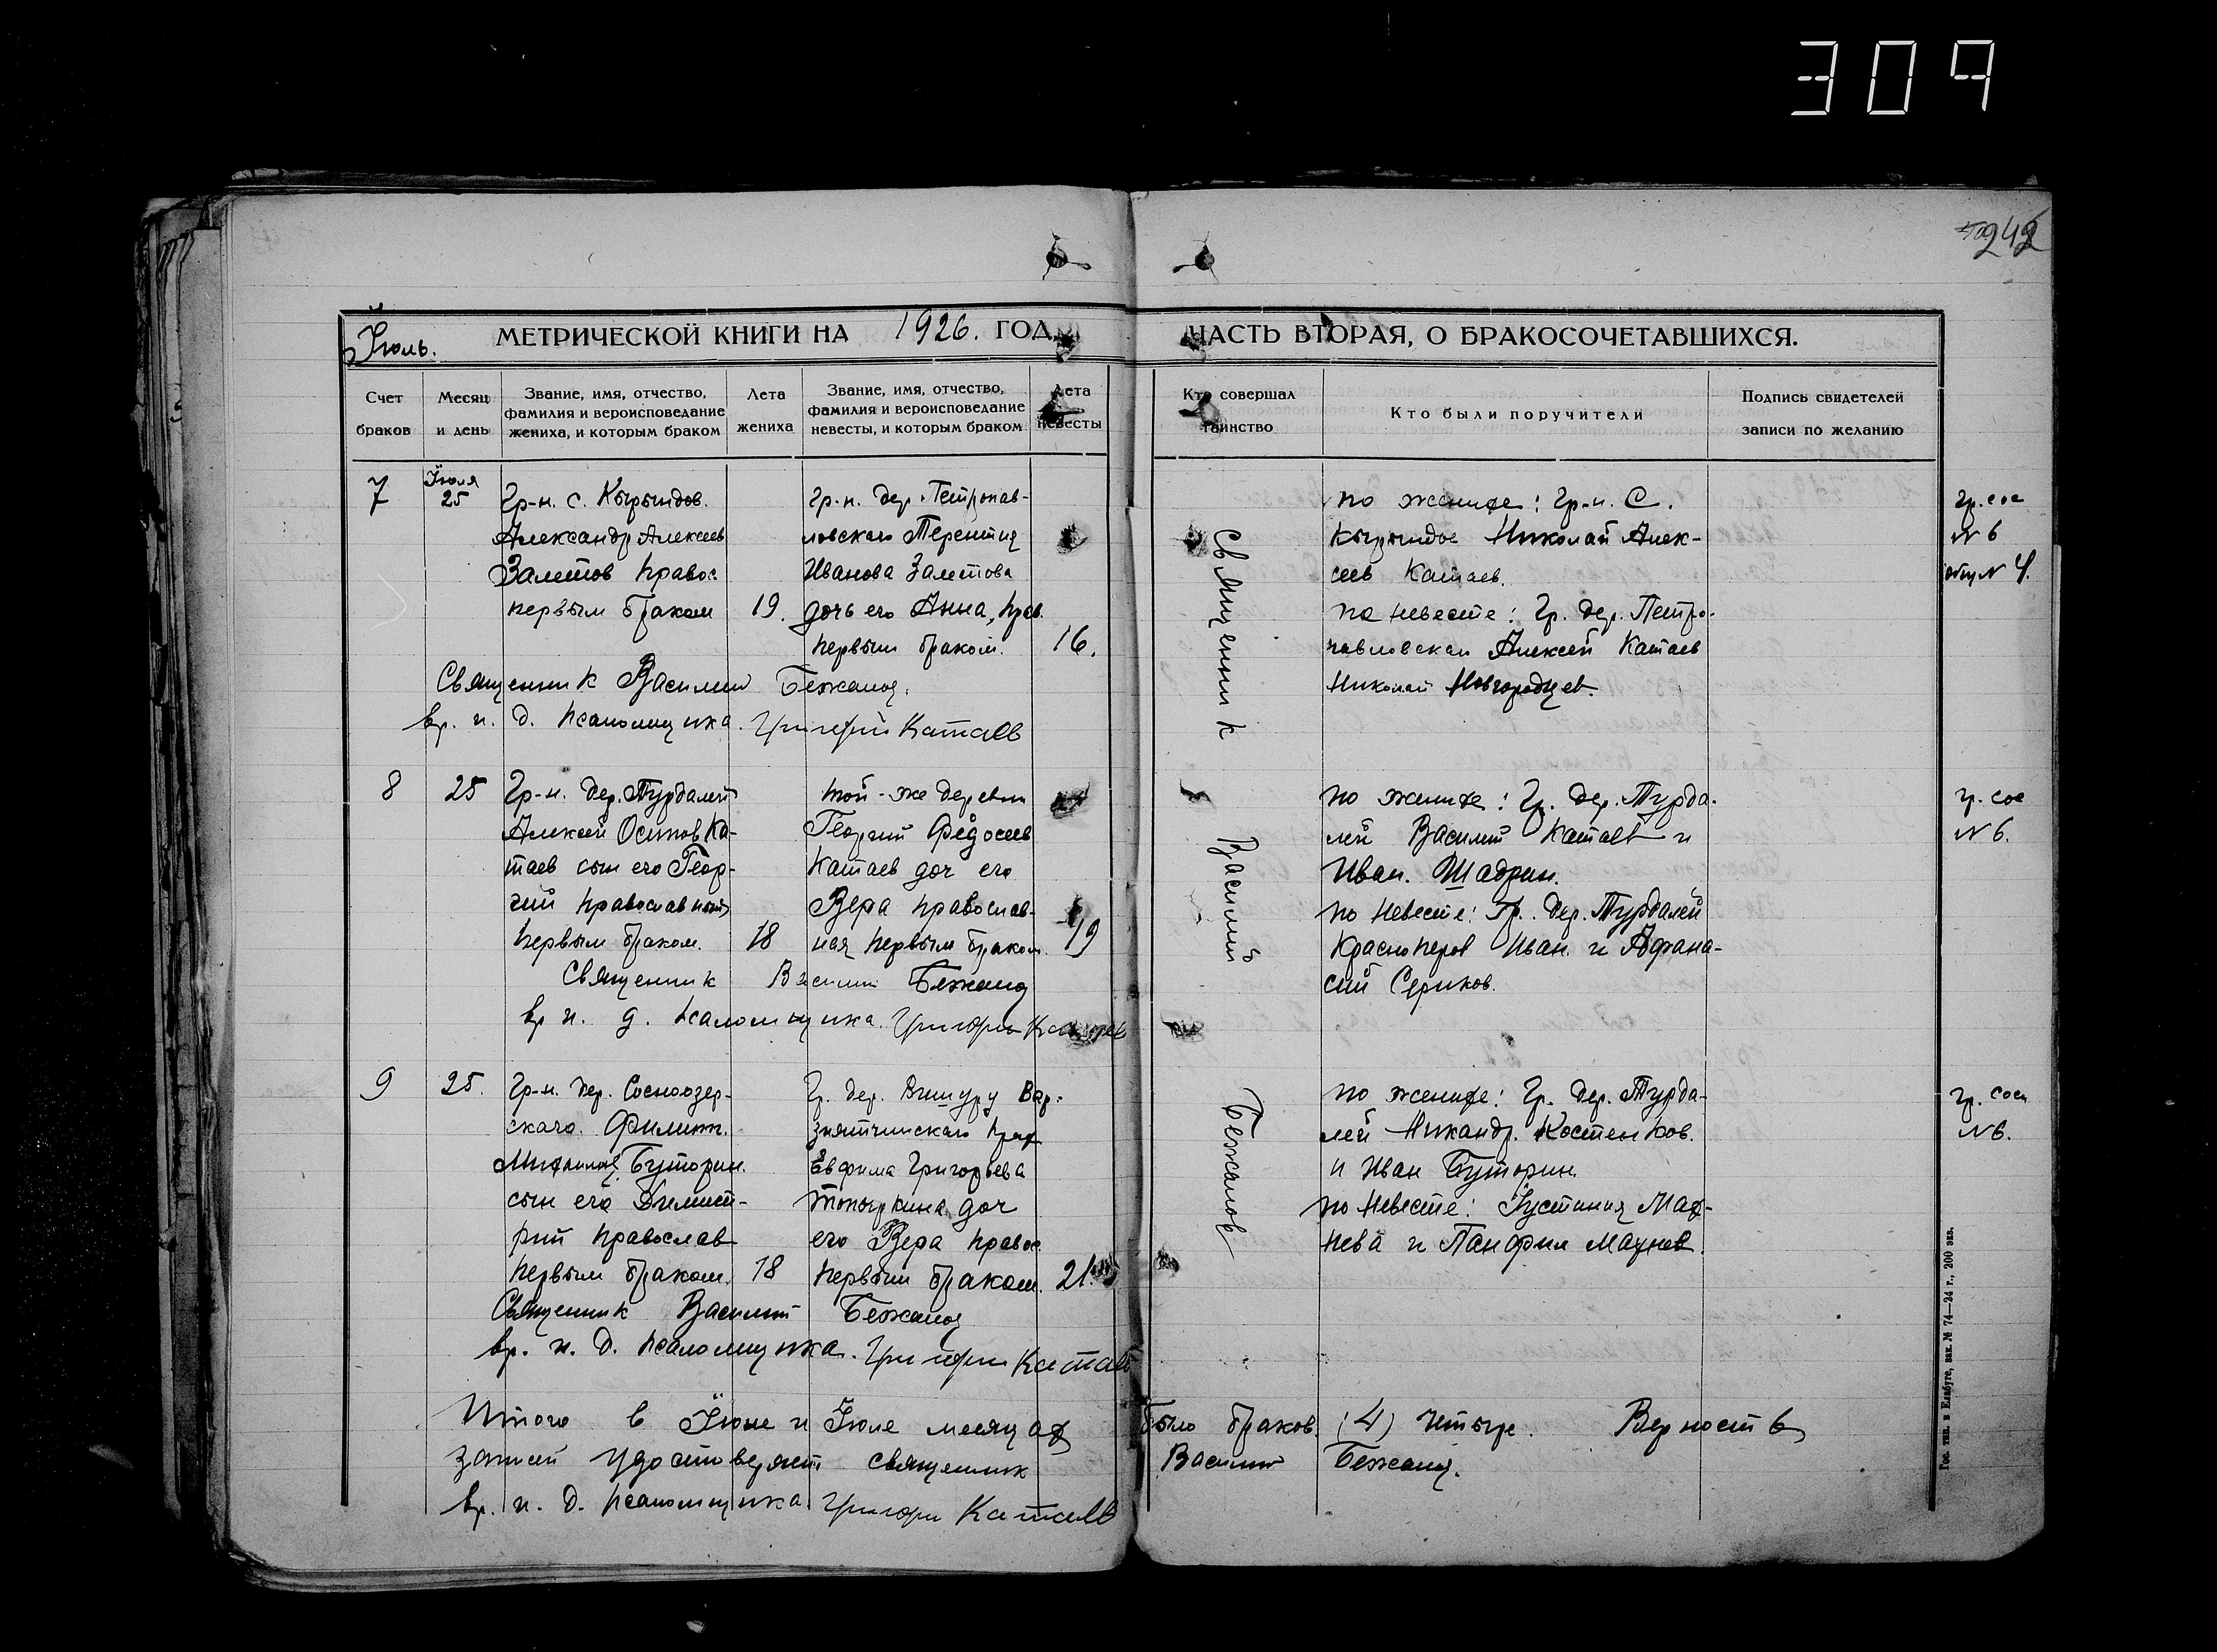 309
242
Іюль.
МЕТРИЧЕСКОЙ КНИГИ НА 1926. ГОД,
ЧАСТЬ ВТОРАЯ, О БРАКОСОЧЕТАВШИХСЯ.
Счет браков
Месяц и день
Звание, имя, отчество, фамилия и вероисповедание жениха, и которым браком
Лета жениха
Звание, имя, отчество, фамилия и вероисповедание невесты, и которым браком
Лета невесты
Кто совершал таинство
Кто были поручители
Подпись свидетелей записи по желанию
7
Іюля
25
Гр-н. с. Кырындов.
Александр Алексеев
Залетов правос.
первым браком
19.
гр-н. дер. Петропав-
ловскаго Терентия
Иванова Залетова
дочь его Анна, прав.
первым браком.
16.
Священник Василий Бежанов.
вр. и. д. псаломщика. Григорий Катаев
по женихе: гр-н. С.
Кырындов Николай Алек-
сеев Катаев.
по невесте: Гр. дер. Петро-
павловская Алексей Катаев
Николай Новгородцев.
гр. сос
№ 6
№ 4.
8
25
Гр-н. дер. Турдалей
Алексей Осипов Ка-
таев сын его Геор-
гий православный
первым браком.
18
той-же деревни
Георгий Федосеев
Катаев доч его
Вера православ-
ная первым браком.
19
Священник Василий Бежанов
вр и. д. псаломщика. Григорий Катаев
по женихе: Гр. дер. Турда-
лей Василий Катаев и
Иван. Шадрин.
по невесте: Гр. дер. Турдалей
Красноперов Иван. и Афана-
сий Сериков.
гр. сос
№ 6.
9
25.
Гр-н. дер. Сосноозер-
скаго. Филипп.
Михаилов Буторин.
сын его Димит-
рий православ
первым браком.
18
Гр. дер. Вишуру Вар-
зиятчинскаго
Евфима Григорьева
Топыркина доч
его Вера правос
первым браком.
21.
Священник Василий Бежанов
вр. и. д. псаломщика. Григорий Катаев
по женихе: Гр. дер. Турда-
лей Никандр. Костенков.
и Иван Буторин.
по невесте: Іустиния Мах-
нева и Панфил Махнев.
гр. сос
№ 6.
Священник Василий Бежанов
Итого в Іюне и Іюле месяцах было браков. (4) четыре. Верность
записей удостоверяет священник Василий Бежанов.
вр. и. д. псаломщика. Григорий Катаев
Гос. тип. в Елабуге, зак. № 74—24 г., 200 экз.